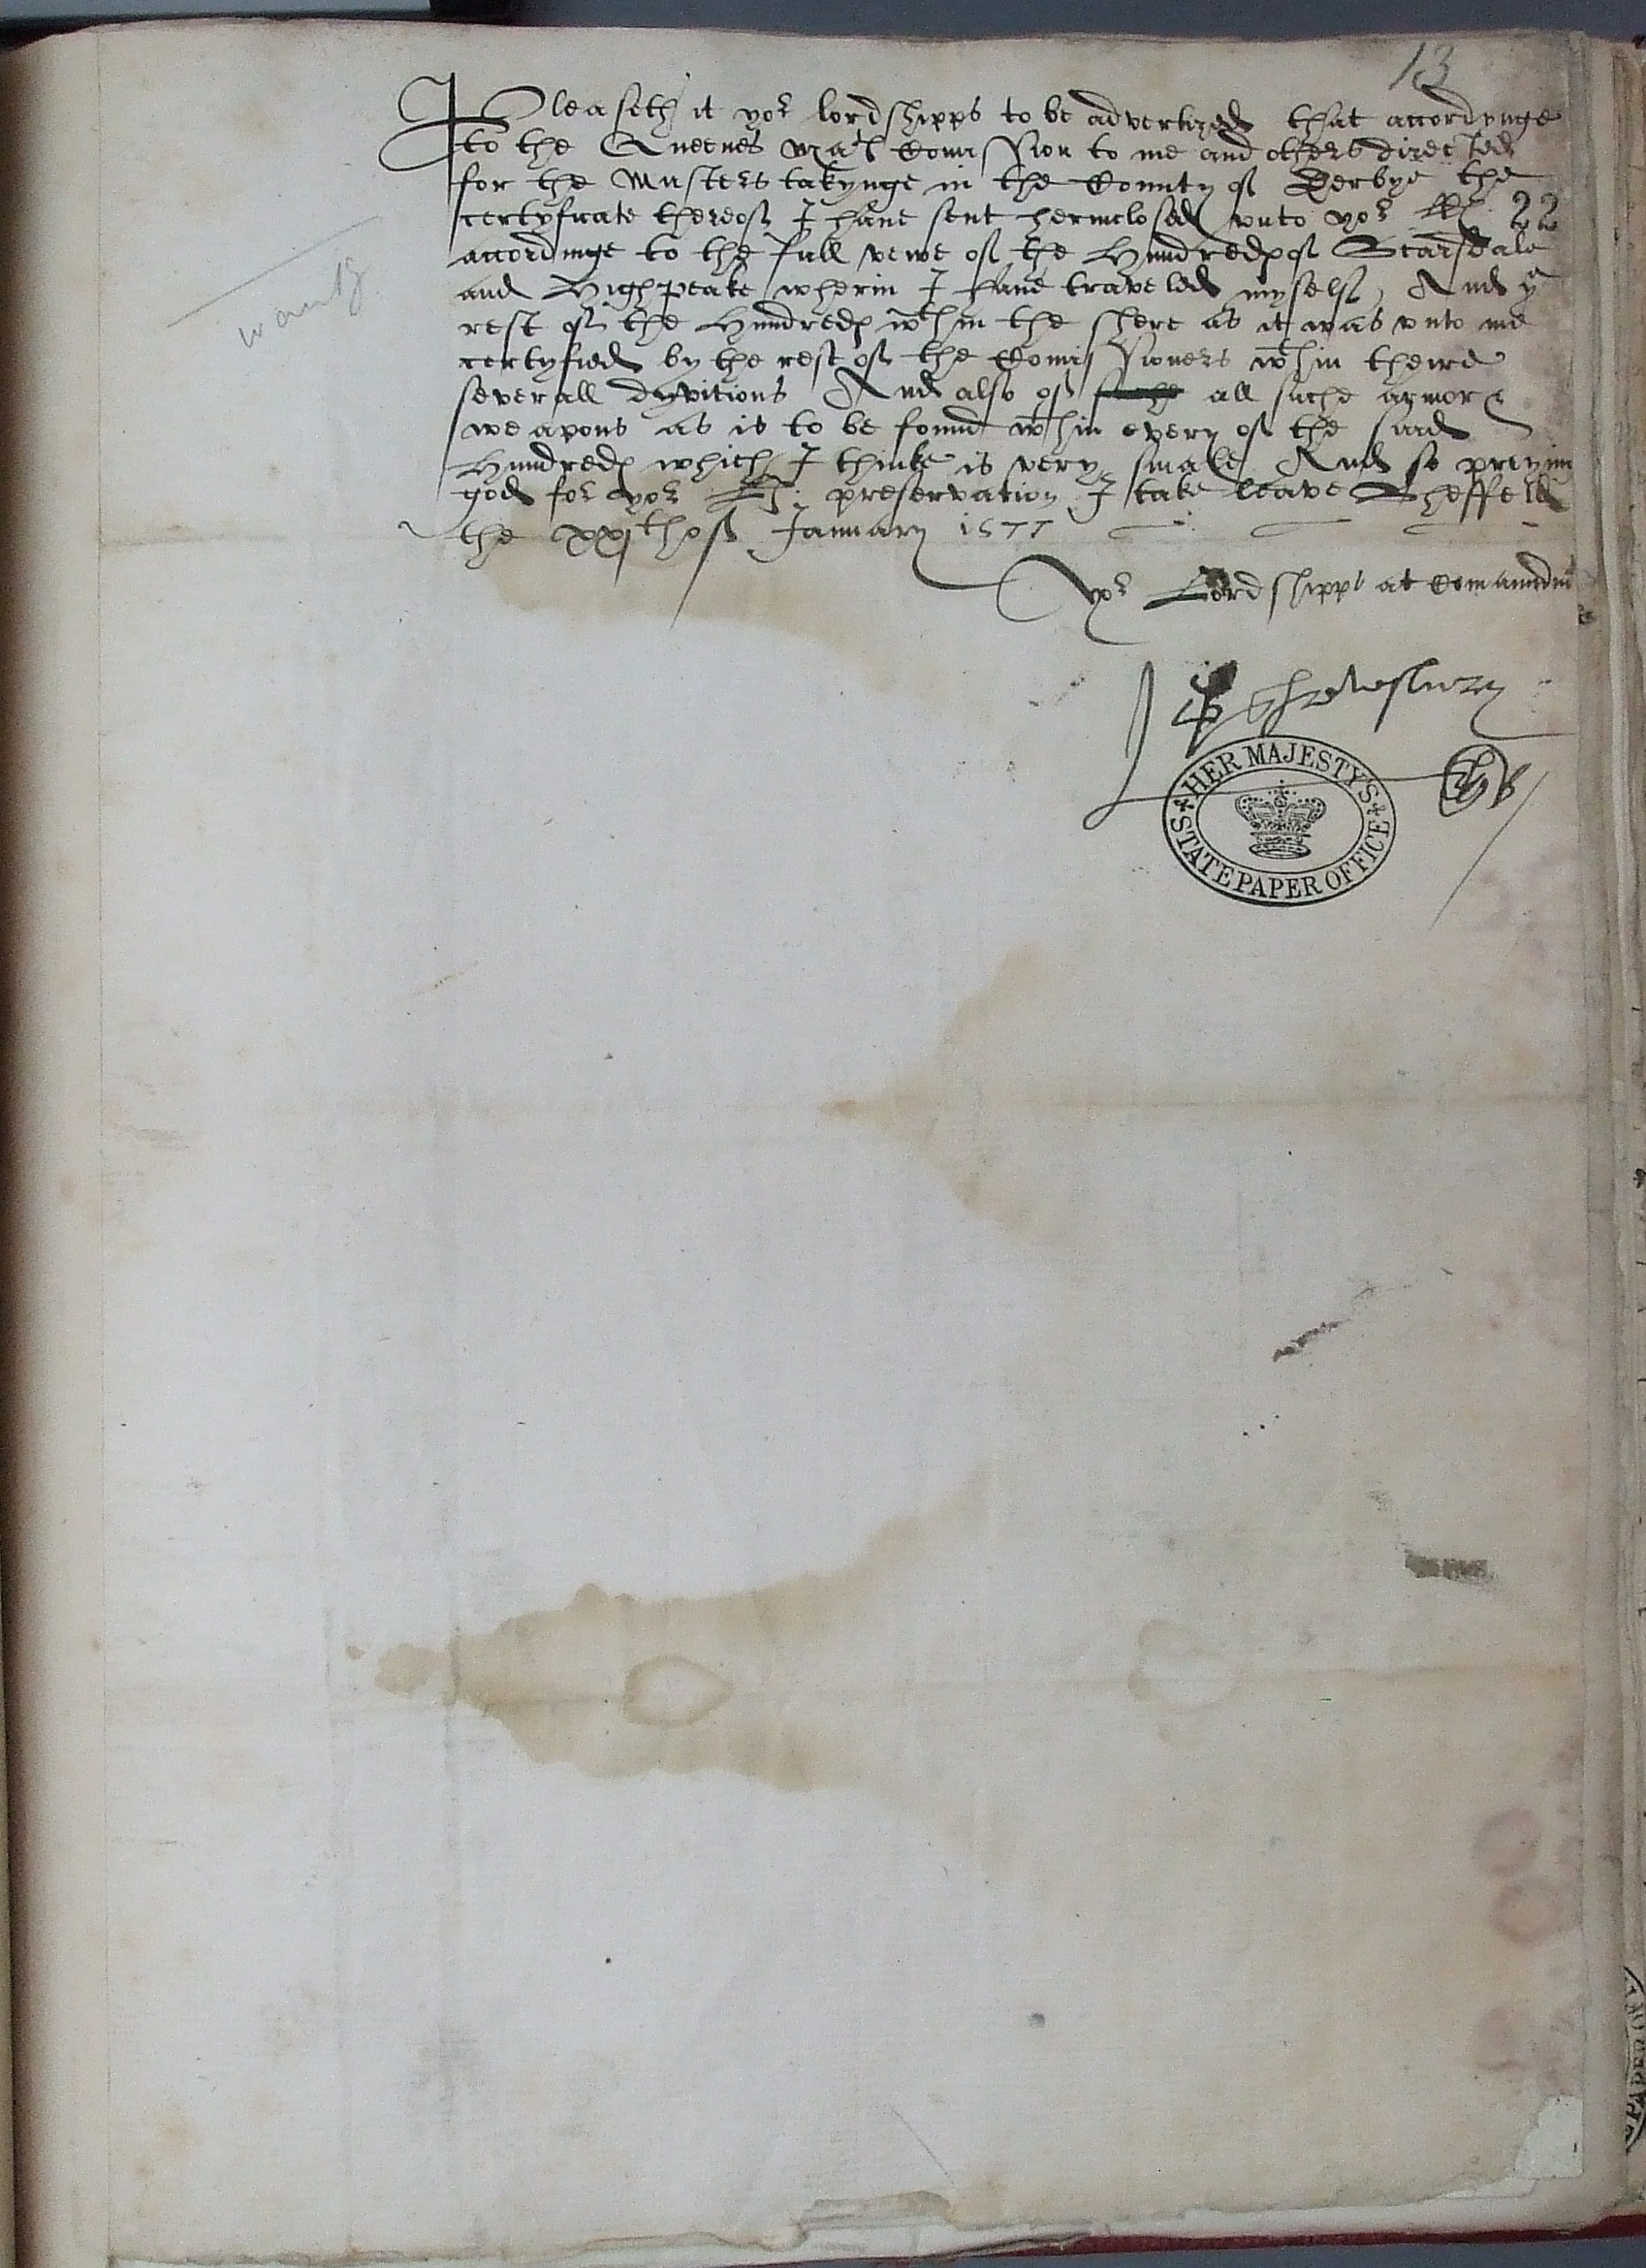 13
Pleaseth it yor lordshipps to be advertized that accordynge
to the Queenes Mats Comission to me and others directed
for the Musters takynge in the County of Derbye the
certyficate thereof I have sent hermclosed unto yor LL: 22
accordinge to the full vewe of the Hundredes of Scarsdale
and Highpeake wherin I have traveled myself, And ye
rest of the Hundredes wthin the shere as it was unto me
certyfied by the rest of the Comissioners wthin theire
severall dyvitions And also of suche all suche armor &
weapons as is to be found wthin every of the said
Hundredes which I thinke is very smale And so preyin
god for yor LL: preservation I take leave Sheffeld
the xxjth of January 1577
Yor Lordshipps at Comaundmt
G Shrewsbury
HER MAJESTY'S STATE PAPER OFFICE